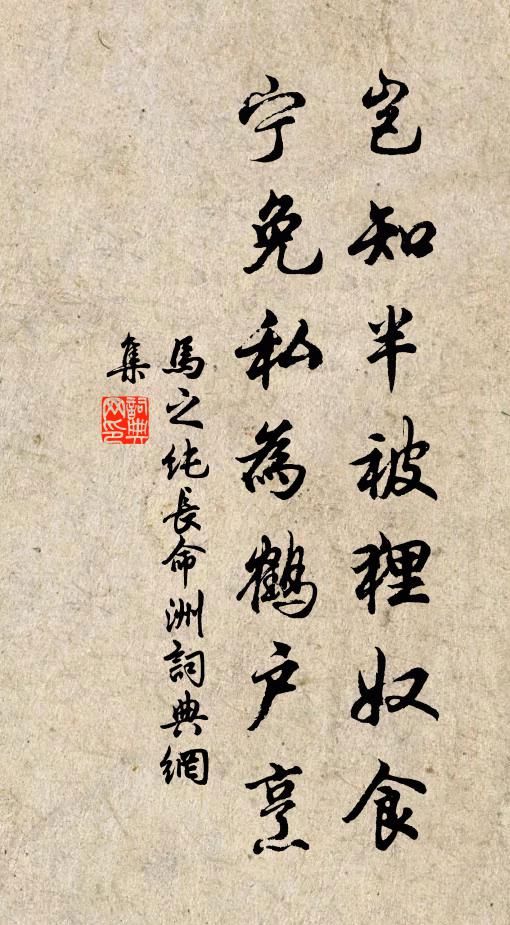 岂知半被狸奴食
宁免私為鶴户烹
馬之純長命洲詞典網
集
詞典網印